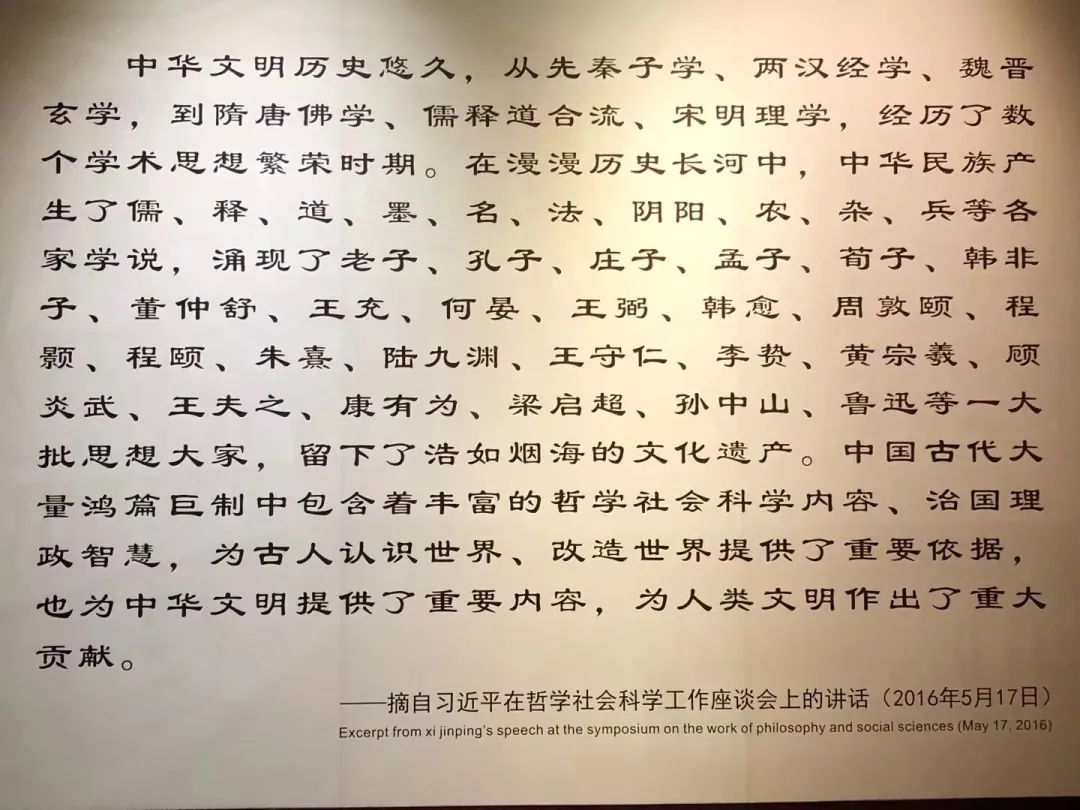 中华文明历史悠久，从先秦子学、两汉经学、魏晋
玄学，到隋唐佛学、儒释道合流、宋明理学，经历了数
个学术思想繁荣时期。在漫漫历史长河中，中华民族产
生了儒、释、道、墨、名、法、阴阳、农、杂、兵等各
家学说，涌现了老子、孔子、庄子、孟子、荀子、韩非
子、董仲舒、王充、何晏、王弼、韩愈、周敦颐、程
颢、程颐、朱熹、陆九渊、王守仁、李贽、黄宗羲、顾
炎武、王夫之、康有为、梁启超、孙中山、鲁迅等一大
批思想大家，留下了浩如烟海的文化遗产。中国古代大
量鸿篇巨制中包含着丰富的哲学社会科学内容、治国理
政智慧，为古人认识世界、改造世界提供了重要依据，
也为中华文明提供了重要内容，为人类文明作出了重大
贡献。
——摘自习近平在哲学社会科学工作座谈会上的讲话（2016年5月17日）
Excerpt from xi jinping's speech at the symposium on the work of philosophy and social sciences (May 17, 2016)